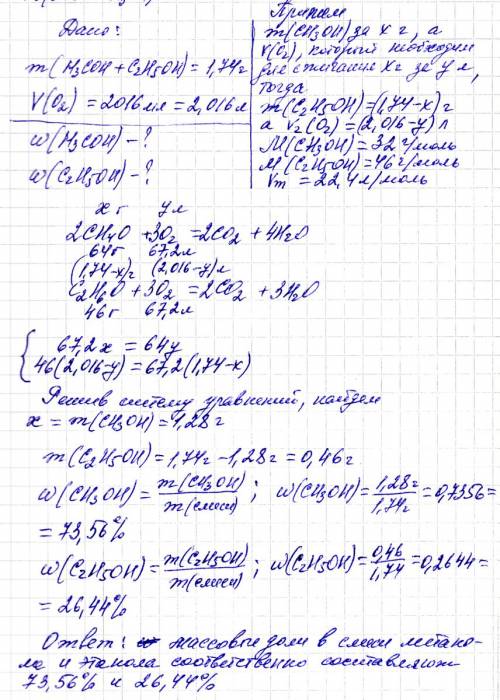 Дано:
m(H₃COH + C₂H₅OH) = 1,74г
V(O₂) = 2016 мл = 2,016 л
w(H₃COH) - ?
w(C₂H₅OH) - ?
Примем
m(CH₃OH) за x г, а
V(O₂), который необходим
для сжигания x г за y л,
тогда
m(C₂H₅OH) = (1,74-x) г
а V₂(O₂) = (2,016-y) л
M(CH₃OH) = 32 г/моль
M(C₂H₅OH) = 46 г/моль
Vm = 22,4 л/моль
x г y л
2CH₄O + 3O₂ = 2CO₂ + 4H₂O
64г 67,2л
(1,74-x)г (2,016-y)л
C₂H₆O + 3O₂ = 2CO₂ + 3H₂O
46г 67,2л
67,2x = 64y
46(2,016-y) = 67,2(1,74-x)
Решив систему уравнений, найдем
x = m(CH₃OH) = 1,28г
m(C₂H₅OH) = 1,74г - 1,28г = 0,46г
w(CH₃OH) = m(CH₃OH)/m(смеси); w(CH₃OH) = 1,28г/1,74г = 0,7356 =
= 73,56%
w(C₂H₅OH) = m(C₂H₅OH)/m(смеси); w(C₂H₅OH) = 0,46/1,74 = 0,2644 =
= 26,44%
Ответ: массовые доли в смеси метано-
ла и этанола соответственно составляют
73,56% и 26,44%